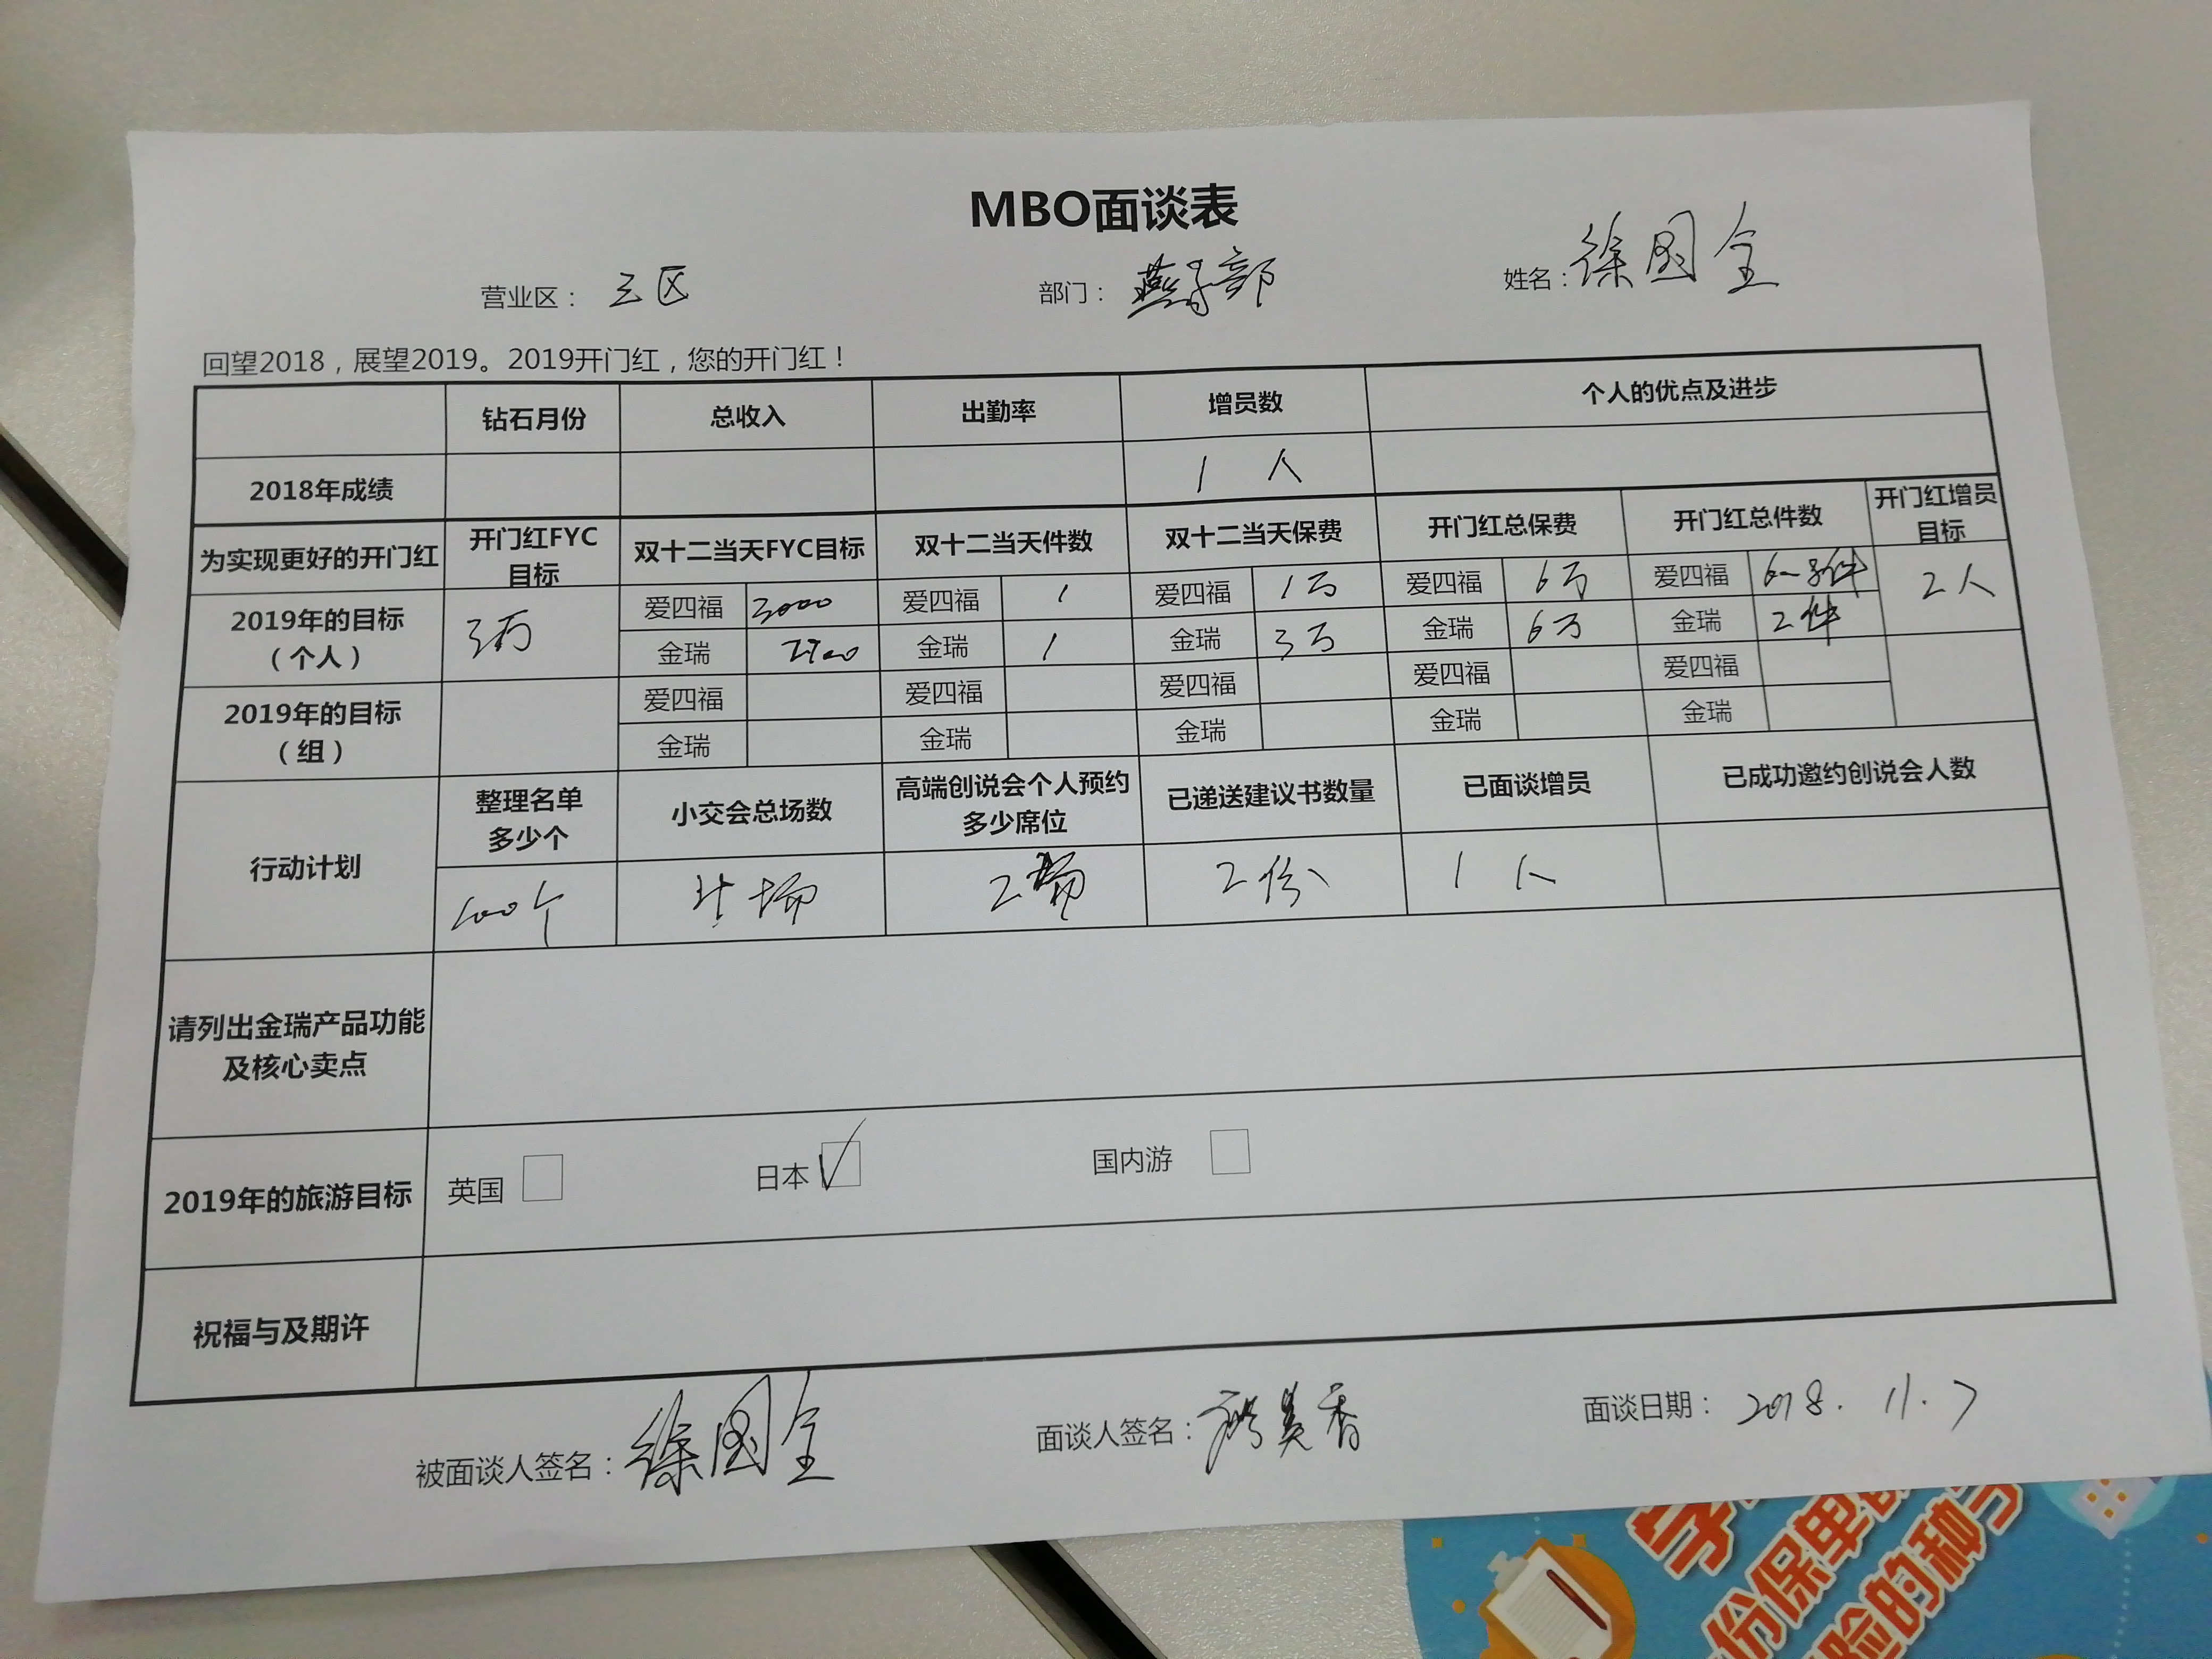 MBO面谈表
营业区： 三区 部门： 燕子部 姓名：徐国全
回望2018，展望2019。2019开门红，您的开门红！
钻石月份 总收入 出勤率 增员数 个人的优点及进步
2018年成绩 1人
为实现更好的开门红 开门红FYC目标 双十二当天FYC目标 双十二当天件数 双十二当天保费 开门红总保费 开门红总件数 开门红增员目标
2019年的目标（个人） 3万 爱四福 3000 爱四福 1 爱四福 1万 爱四福 6万 爱四福 2人
金瑞 金瑞 1 金瑞 3万 金瑞 6万 金瑞 2件
2019年的目标（组） 爱四福 爱四福 爱四福 爱四福 爱四福
金瑞 金瑞 金瑞 金瑞 金瑞
行动计划 整理名单多少个 小交会总场数 高端创说会个人预约多少席位 已递送建议书数量 已面谈增员 已成功邀约创说会人数
个 场 2 2份 1人
请列出金瑞产品功能及核心卖点
2019年的旅游目标 英国 日本 ✓ 国内游
祝福与及期许
被面谈人签名：徐国全 面谈人签名： 美香 面谈日期： 2018. 11. 7
份保单
险的种